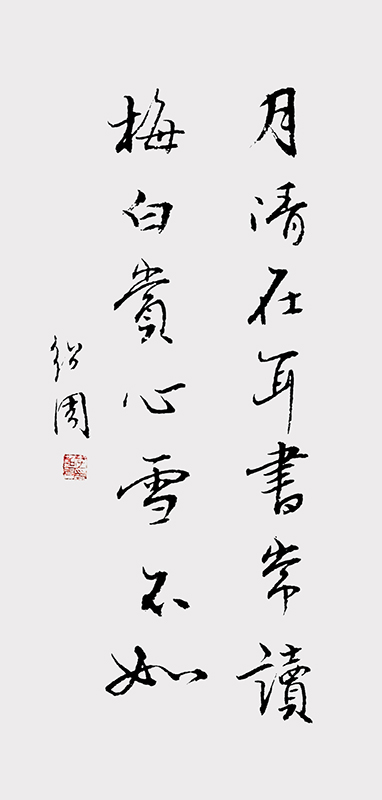 月清在耳書常讀
梅白賞心雪不如
紹周